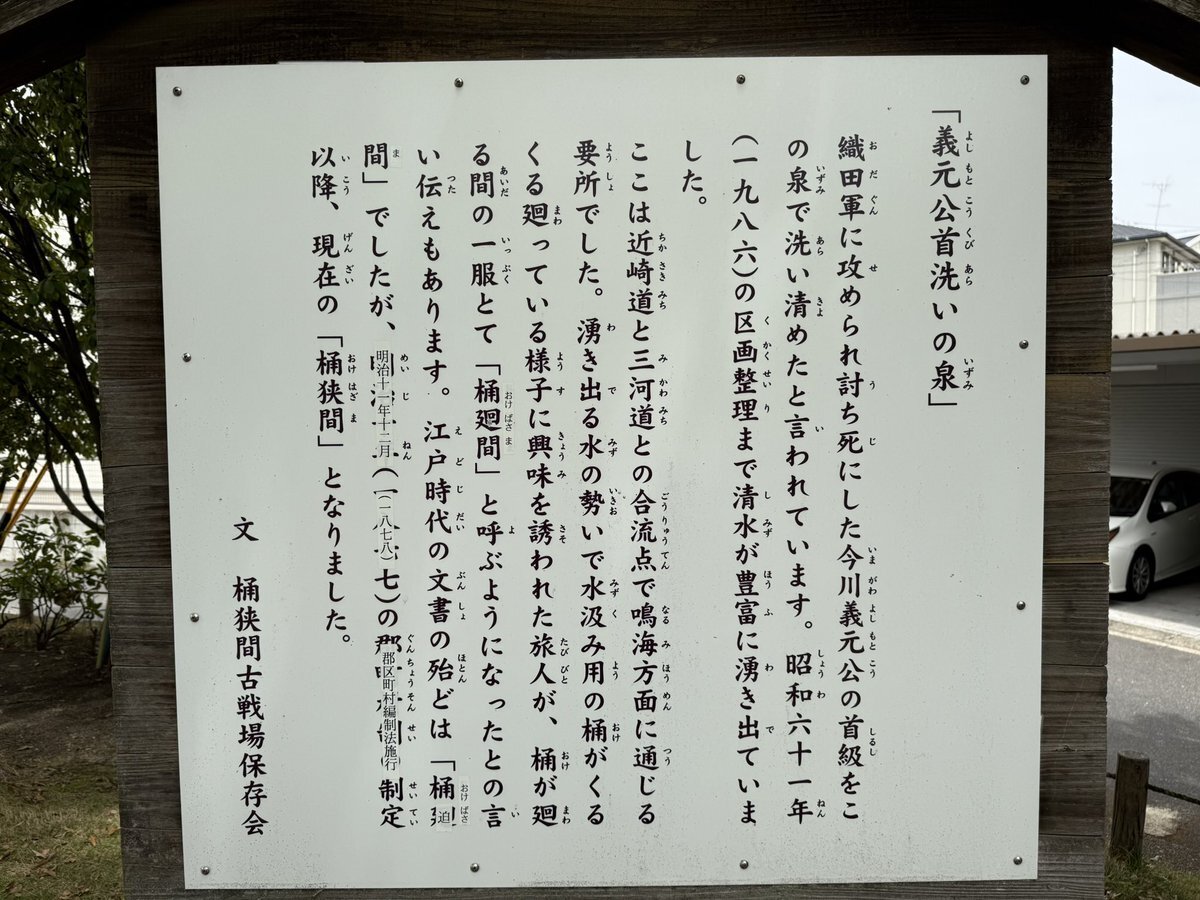 「義元公首洗いの泉」
織田軍に攻められ討ち死にした今川義元公の首級をこ
の泉で洗い清めたと言われています。昭和六十一年
(一九八六)の区画整理まで清水が豊富に湧き出ていま
した。
ここは近崎道と三河道との合流点で鳴海方面に通じる
要所でした。湧き出る水の勢いで水汲み用の桶がくる
くる廻っている様子に興味を誘われた旅人が、桶が廻
る間の一服とて「桶廻間」と呼ぶようになったとの言
い伝えもあります。江戸時代の文書の殆どは「桶迫
間」でしたが、明治十一年十二月(一八七八)の郡区町村編制法施行(制定
以降、現在の「桶狭間」となりました。
文 桶狭間古戦場保存会